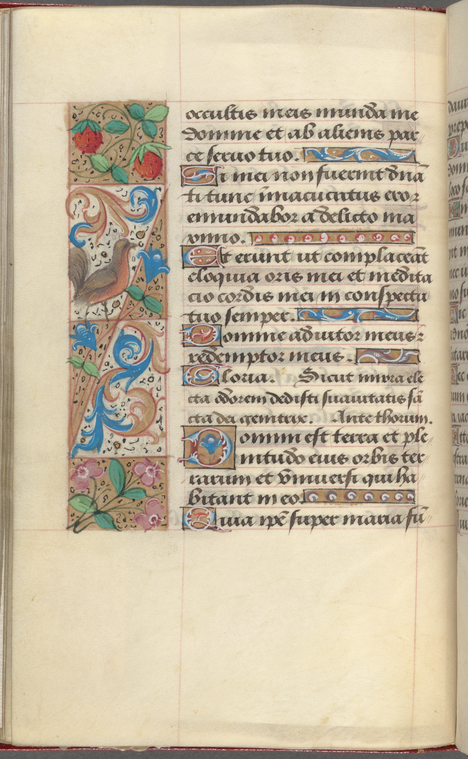 occultis meis munda me
Domine et ab alienis par
ce servo tuo.
Si mei non fuerint dnã
ti tunc immaculatus ero et
emundabor a delicto ma
ximo.
Et erunt ut complaceãt
eloquia oris mei et medita
cio cordis mei in conspectu
tuo semper.
Domine adiutor meus et
redemptor meus.
Gloria. Sicut mirra ele
cta odorem dedisti suavitatis sã
cta dei genitrix. Ante thorum.
Domini est terra et ple
nitudo eius orbis ter
rarum et universi qui ha
bitant in eo.
Quia ipẽ super maria fũ